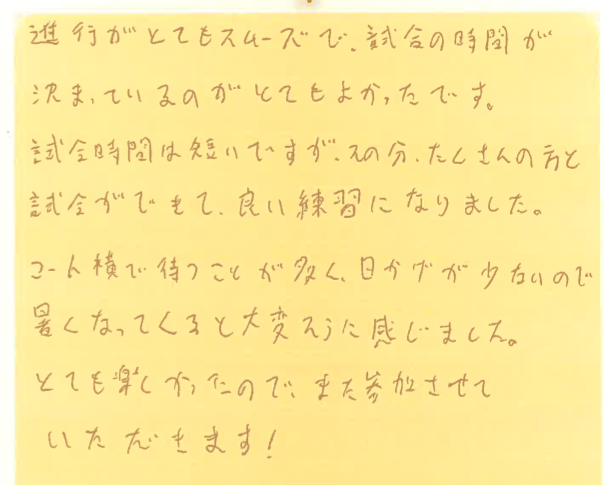 進行がとてもスムーズで、試合の時間が
決まっているのがとてもよかったです。
試合時間は短いですが、その分、たくさんの方と
試合ができて、良い練習になりました。
コート横で待つことが多く、日かげが少ないので
暑くなってくると大変そうに感じました。
とても楽しかったので、また参加させて
いただきます!